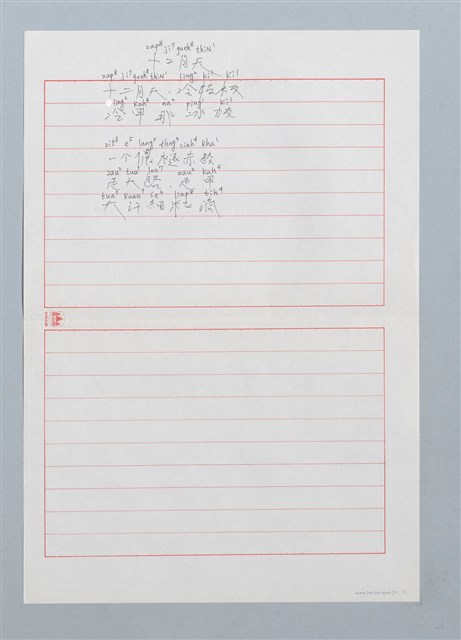 zap⁸ ji⁷ gueh⁸ thiN¹
十二月天
zap⁸ ji⁷ gueh⁸ thiN¹ ling² ki¹ ki¹
十二月天，冷枝枝
ling² kah⁴ na² ping¹ ki¹
冷甲那冰枝
zit⁸ e⁵ lang⁵ thng³ ziah⁴ kha¹
一个儂褪赤跤
zau² tua⁷ loo⁷ zau² kah⁴
走大路，走甲
tua⁷ kuaN⁷ se³ liap⁸ tih⁴
大汗細粒滴